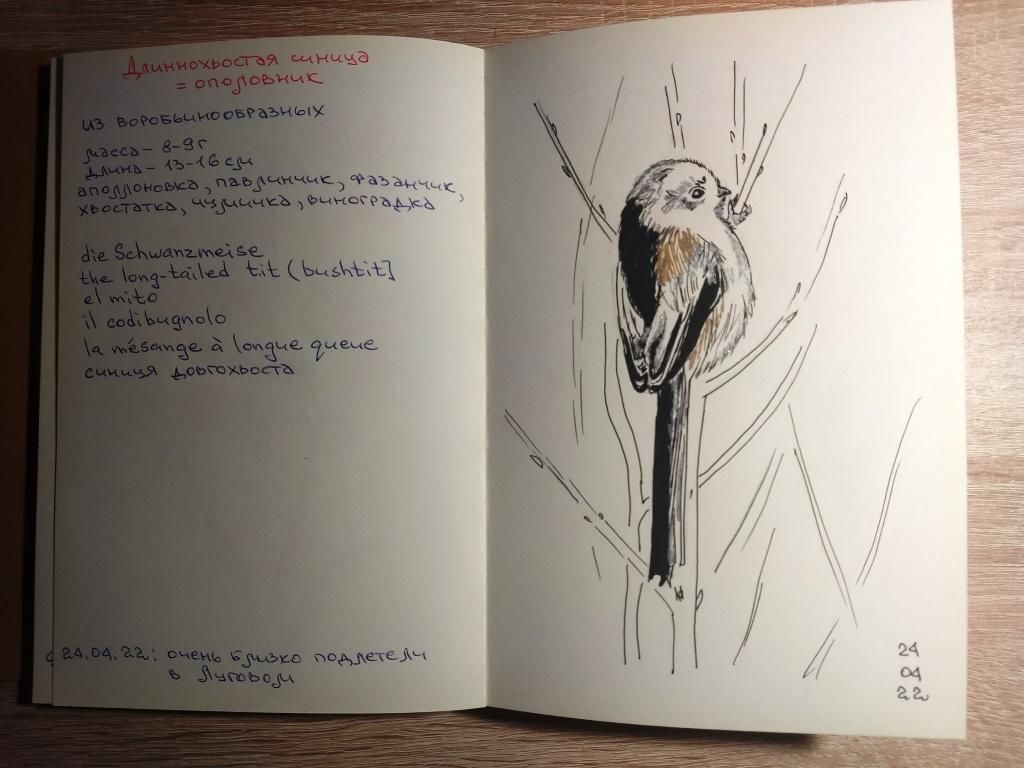 Длиннохвостая синица
= ополовник
из воробьинообразных
масса – 8-9 г
длина – 13-16 см
аполлоновка, павлинчик, фазанчик,
хвостатка, чумичка, виноградка
die Schwanzmeise
the long-tailed tit (bushtit]
el mito
il codibugnolo
la mésange à longue queue
синиця довгохвоста
24.04.22: очень близко подлетели
в Луговом
24
04
22